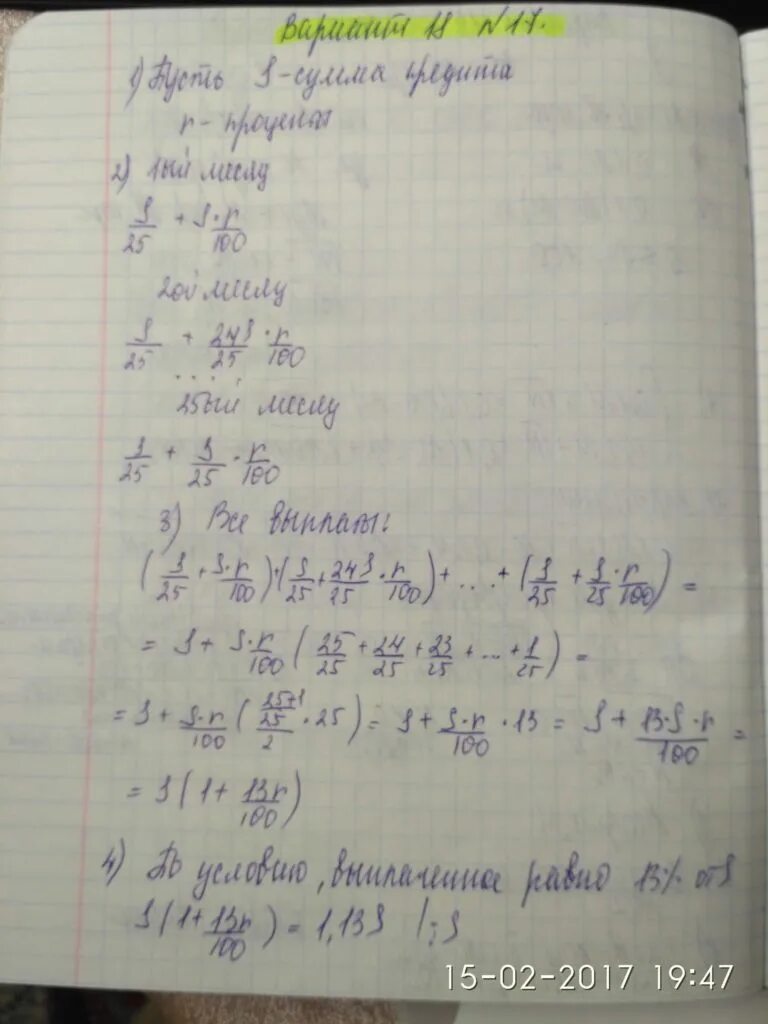 Вариант 18 №17.
1) Пусть S - сумма кредита
r - проценты
2) 1ый месяц
S/25 + S·r/100
2ой месяц
S/25 + 24S/25 · r/100
. . . .
25ый месяц
S/25 + S/25 · r/100
3) Все выплаты:
(S/25 + S·r/100)+(S/25 + 24S/25 · r/100) + ... + (S/25 + S/25 · r/100) =
= S + S·r/100 (25/25 + 24/25 + 23/25 + ... + 1/25) =
= S + S·r/100 ((25+1)/25/2 · 25) = S + S·r/100 · 13 = S + 13·S·r/100 =
= S(1 + 13r/100)
4) По условию, выплаченное равно 13% от S
S(1 + 13r/100) = 1,13S |:S
15-02-2017 19:47